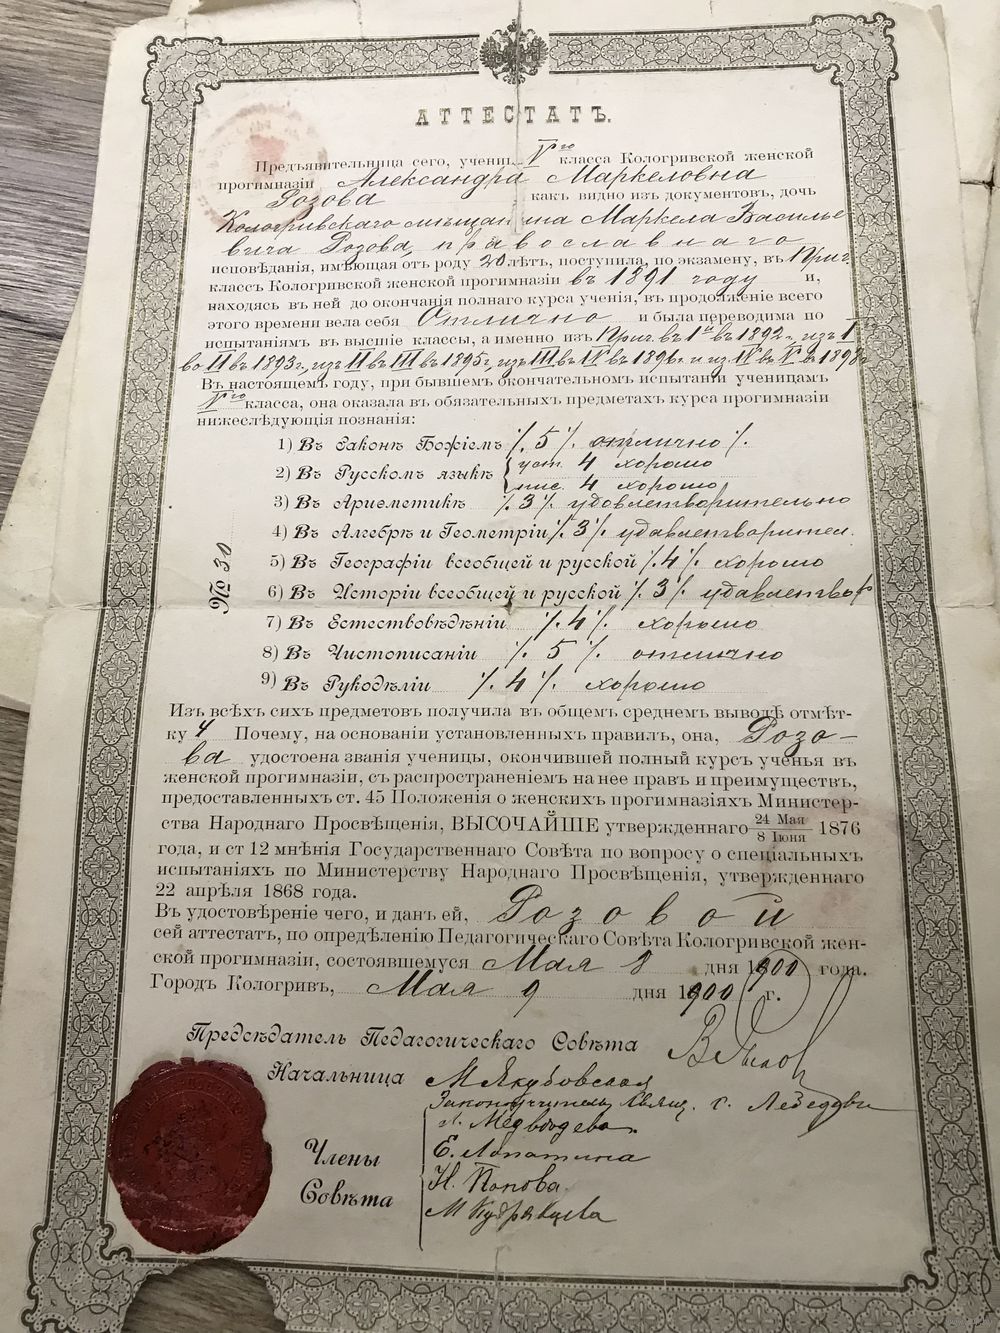 АТТЕСТАТЪ.
Предъявительница сего, учениц V го класса Кологривской женской
прогимназіи Александра Маркеловна
Розова какъ видно изъ документовъ, дочь
Кологривскаго мѣщанина Маркела Василье
вича Розова, православнаго
исповѣданія, имѣющая отъ роду 20 лѣтъ, поступила, по экзамену, въ Приг.
классъ Кологривской женской прогимназіи въ 1891 году и,
находясь въ ней до окончанія полнаго курса ученія, въ продолженіе всего
этого времени вела себя Отлично и была переводима по
испытаніямъ въ высшіе классы, а именно изъ Приг. въ I й въ 1892 г., изъ I
во II въ 1893 г., изъ II въ III въ 1895 г., изъ III въ IV въ 1896 г. и изъ IV въ V въ 1898 г.
Въ настоящемъ году, при бывшемъ окончательномъ испытаніи ученицамъ
V го класса, она оказала въ обязательныхъ предметахъ курса прогимназіи
нижеслѣдующія познанія:
1) Въ Законѣ Божіемъ ٪ 5 ٪ отлично ٪
2) Въ Русскомъ языкѣ { уст. 4 хорошо
пис. 4 хорошо
3) Въ Ариѳметикѣ ٪ 3 ٪ удовлетворительно
4) Въ Алгебрѣ и Геометріи ٪ 3 ٪ удавлетворител.
5) Въ Географіи всеобщей и русской ٪ 4 ٪ хорошо
6) Въ Исторіи всеобщей и русской ٪ 3 ٪ удавлетвор
7) Въ Естествовѣдѣніи ٪ 4 ٪ хорошо
8) Въ Чистописаніи ٪ 5 ٪ отлично
9) Въ Рукодѣліи ٪ 4 ٪ хорошо
№ 30
Изъ всѣхъ сихъ предметовъ получила въ общемъ среднемъ выводѣ отмѣт-
ку 4 Почему, на основаніи установленныхъ правилъ, она, Розо-
ва удостоена званія ученицы, окончившей полный курсъ ученья въ
женской прогимназіи, съ распространеніемъ на нее правъ и преимуществъ,
предоставленныхъ ст. 45 Положенія о женскихъ прогимназіяхъ Министер-
ства Народнаго Просвѣщенія, ВЫСОЧАЙШЕ утвержденнаго 24 Мая / 8 Іюня 1876
года, и ст 12 мнѣнія Государственнаго Совѣта по вопросу о спеціальныхъ
испытаніяхъ по Министерству Народнаго Просвѣщенія, утвержденнаго
22 апрѣля 1868 года.
Въ удостовѣреніе чего, и данъ ей, Розовой
сей аттестатъ, по опредѣленію Педагогическаго Совѣта Кологривской жен-
ской прогимназіи, состоявшемуся Мая 8 дня 1900 года.
Городъ Кологривъ, Мая 9 дня 1900 г.
Предсѣдатель Педагогическаго Совѣта
Начальница М Якубовская
Законоучитель Свящ.
Медвѣдева.
Члены Е. Лопатина
Совѣта Н. Попова.
М Кудрявцева